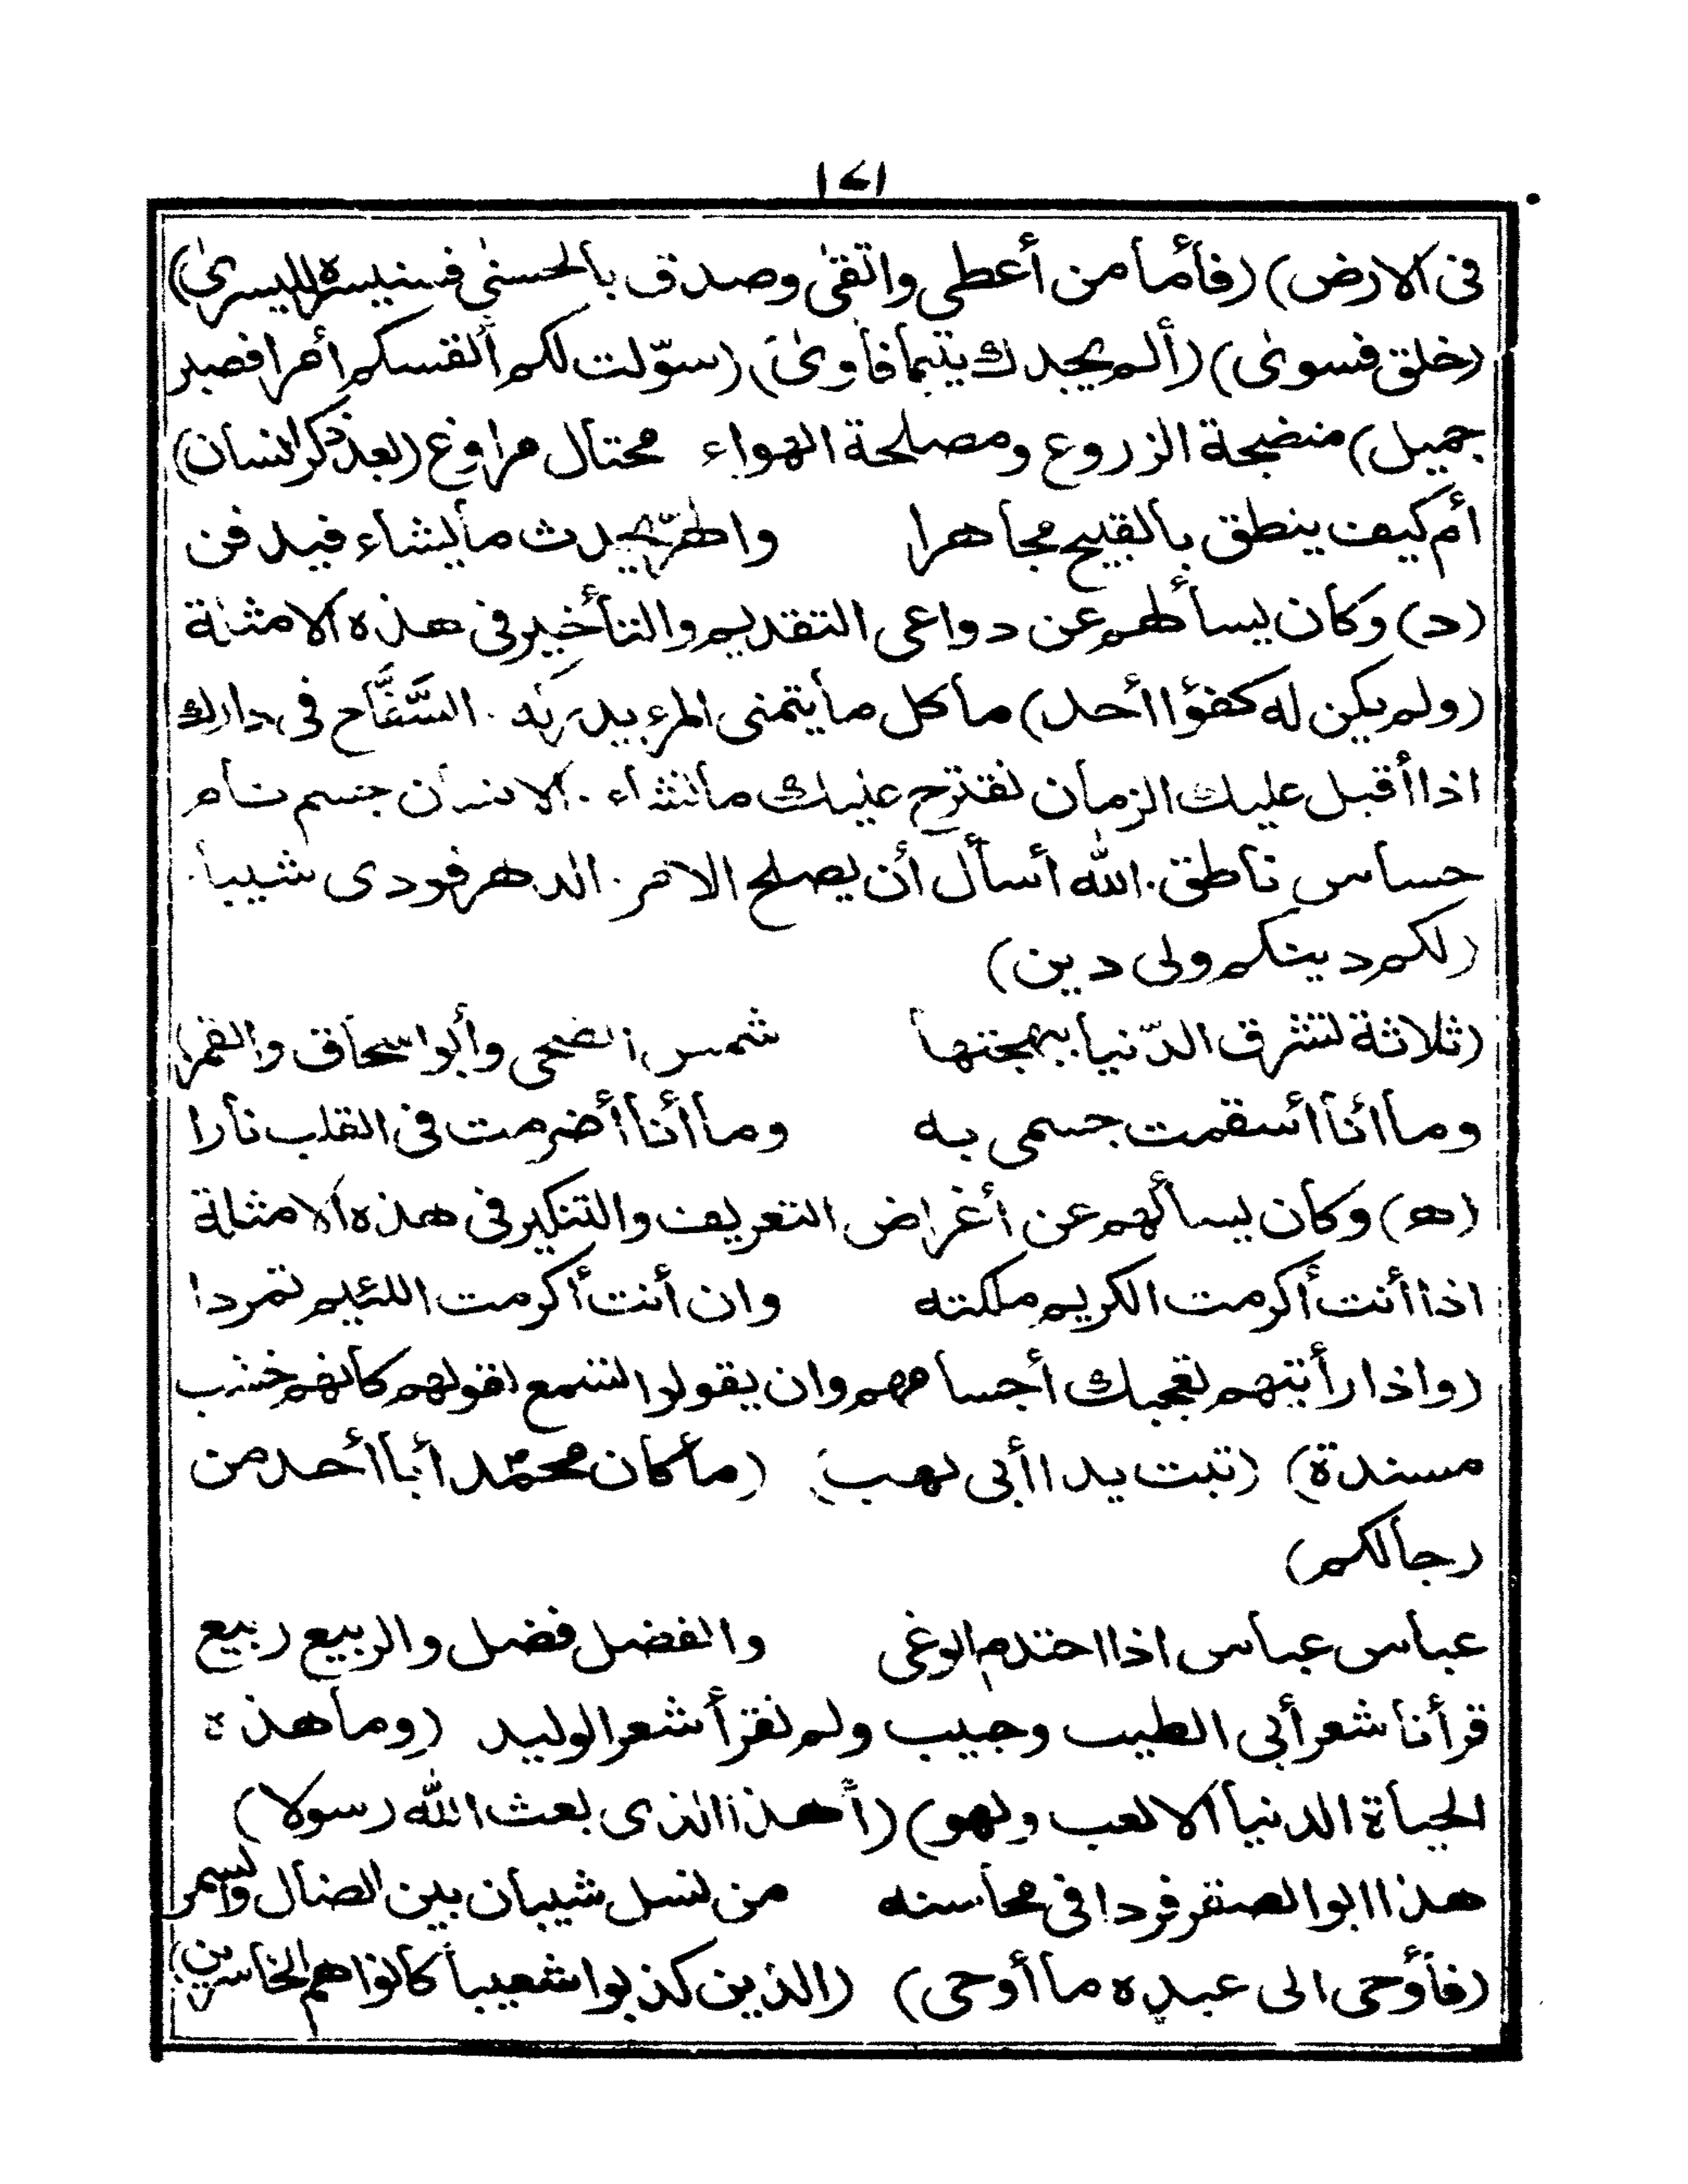 ١٤١
فى الارض) (فأما من أعطى واتقى وصدق بالحسنى فسنيسره لليسرى)
(خلق فسوى) (ألم يجدك يتيما فآوى) (سوّلت لكم أنفسكم أمرا فصبر
جميل) منضجة الزروع ومصلحة الهواء محتال مراوغ (بعد ذكر انسان)
أم كيف ينطق بالقبيح مجاهرا والهرّ يحدث ما يشاء فيدفن
(د) وكان يسألهم عن دواعى التقديم والتأخير فى هذه الامثلة
(ولم يكن له كفؤا أحد) ما كل ما يتمنى المرء يدركه . السَّفَّاح فى دارك
اذا أقبل عليك الزمان نقترح عليك ما نشاء . الانسان جسم نام
حساس ناطق . الله أسأل أن يصلح الامر . الدهر فودى شيبا .
(لكم دينكم ولى دين)
(ثلاثة تشرق الدّنيا ببهجتها شمس الضحى وأبو اسحاق والقمر)
وما أنا أسقمت جسمى به وما أنا أضرمت فى القلب نارا
(ه) وكان يسألهم عن أغراض التعريف والتنكير فى هذه الامثلة
اذا أنت أكرمت الكريم ملكته وان أنت أكرمت اللئيم تمردا
(واذا رأيتهم تعجبك أجسامهم وان يقولوا تسمع لقولهم كأنهم خشب
مسندة) (تبت يدا أبى لهب) (ما كان محمّد أبا أحد من
رجالكم)
عباس عباس اذا احتدم الوغى والفضل فضل والربيع ربيع
قرأنا شعر أبى الطيب وحبيب ولم نقرأ شعر الوليد (وما هذه
الحياة الدنيا الا لعب ولهو) (أهذا الذى بعث الله رسولا)
هذا ابو الصقر فردا فى محاسنه من نسل شيبان بين الضال والسمر
(فأوحى الى عبده ما أوحى) (الذين كذبوا شعيبا كانوا هم الخاسرين)